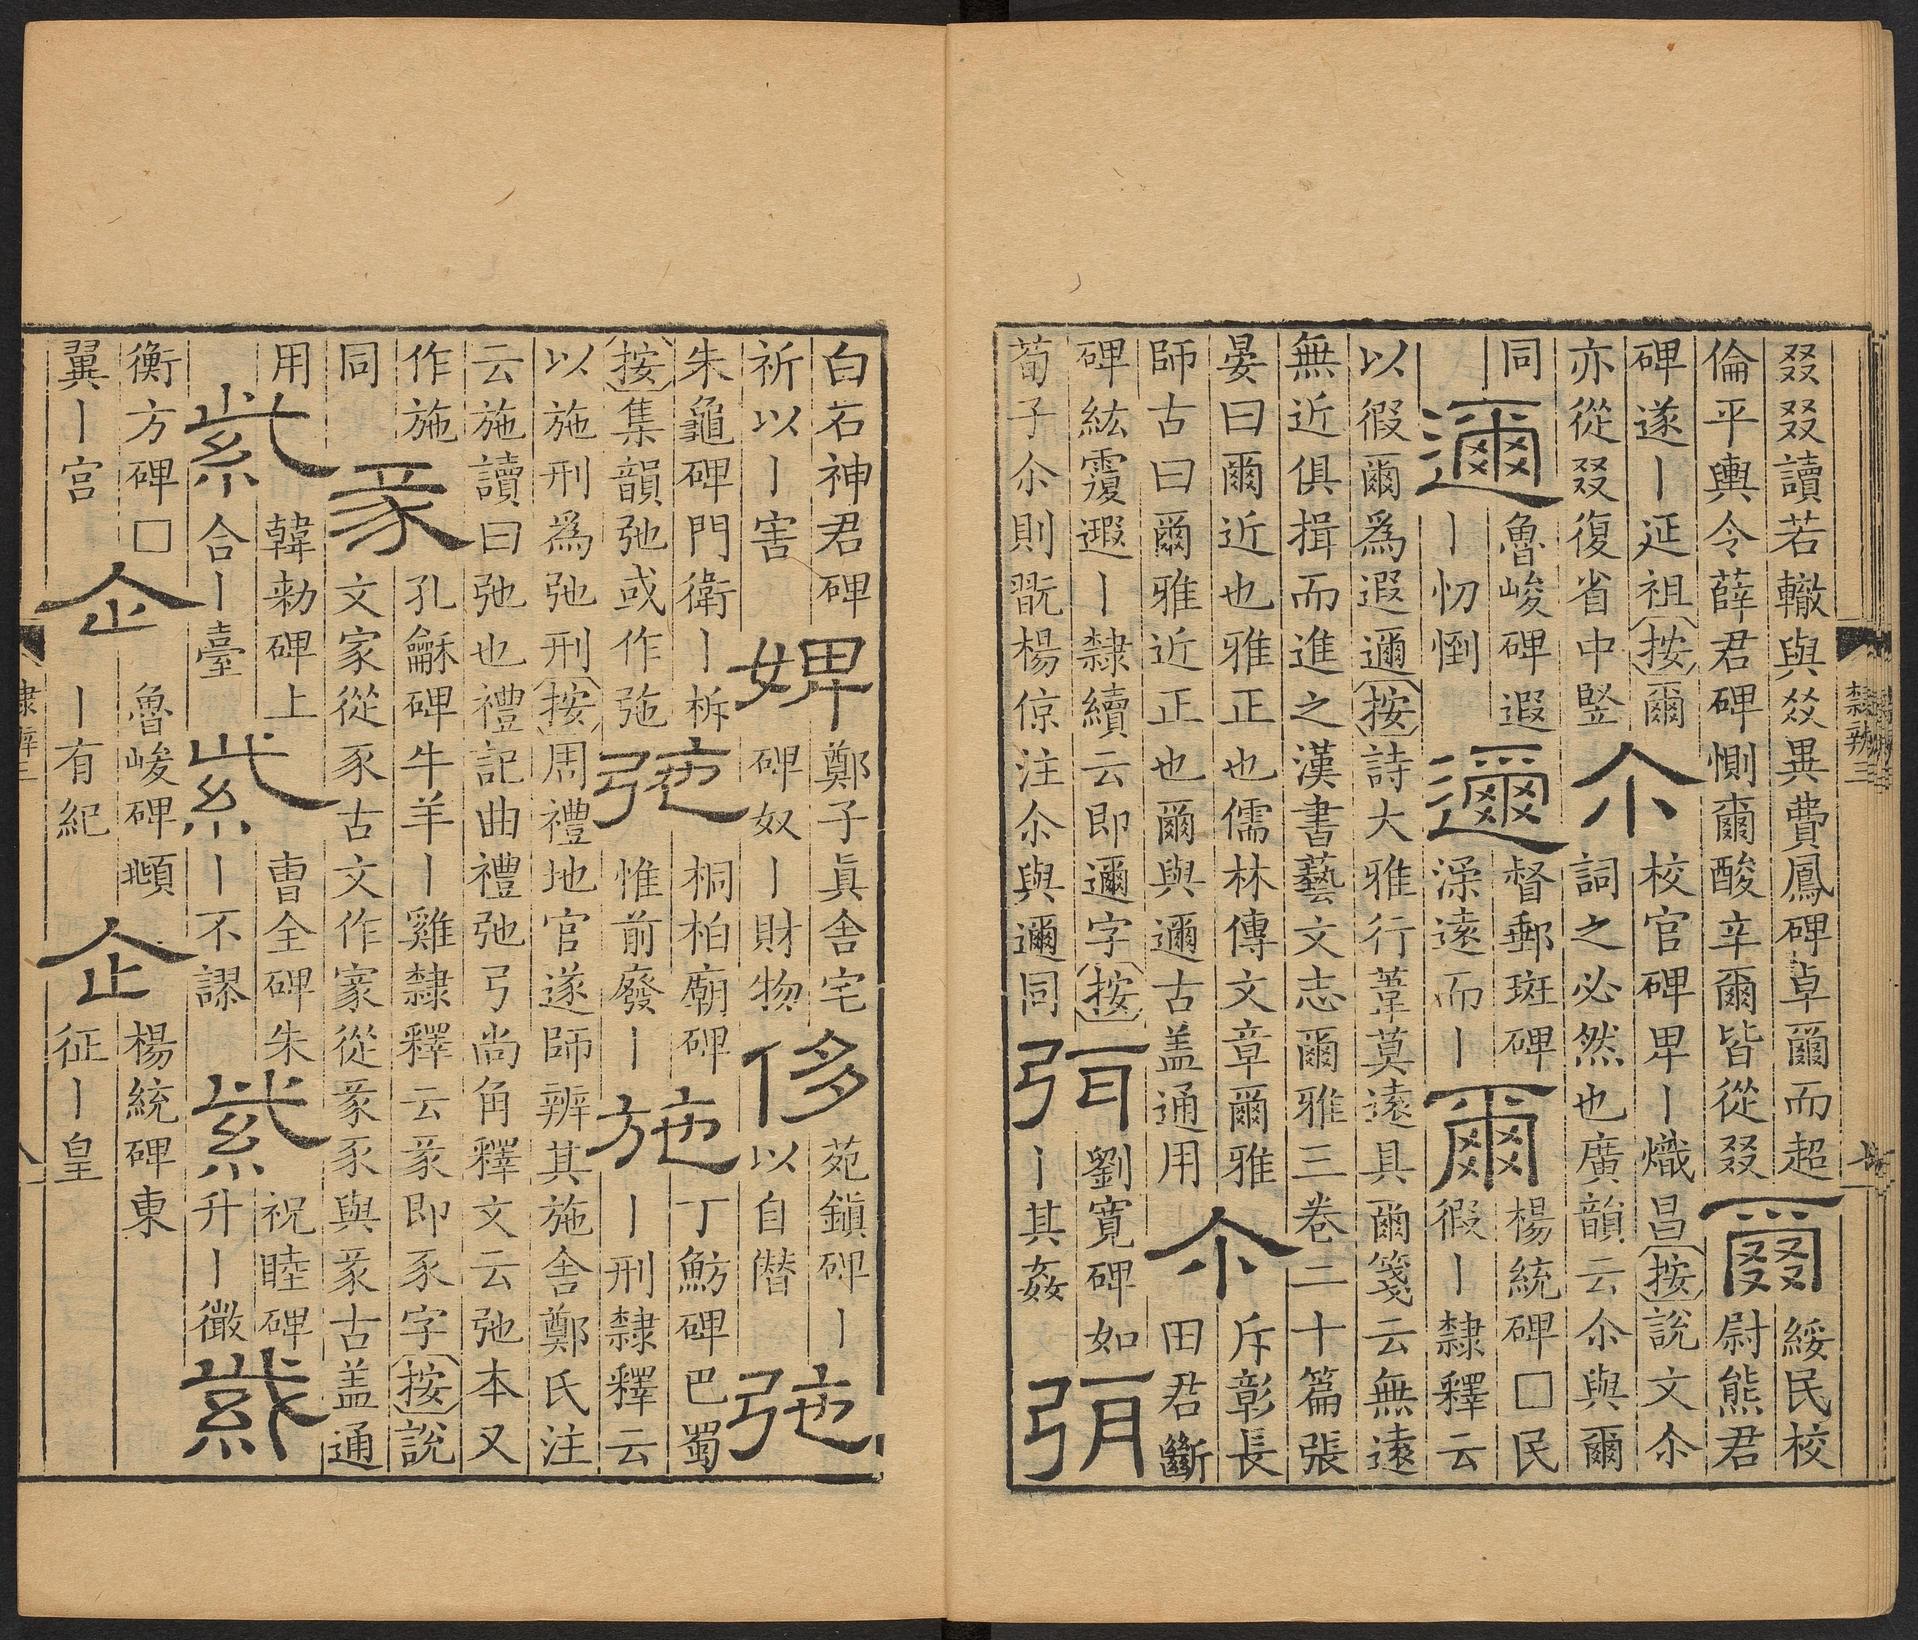 叕叕讀若轍與㸚異費鳳碑卓爾而超
倫平輿令薛君碑惻爾酸辛爾皆從叕
爾
綏民校
尉熊君
碑遂丨延祖按爾
亦從叕復省中竪
尒
校官碑卑丨熾昌按說文尒
詞之必然也廣韻云尒與爾
同
邇
魯峻碑遐
丨忉
邇
督郵班碑
深遠而丨
爾
楊統碑□民
徦丨隸釋云
以徦爾爲遐邇按詩大雅行葦莫遠具爾箋云無遠
無近俱揖而進之漢書藝文志爾雅三卷二十篇張
晏曰爾近也雅正也儒林傳文章爾雅
師古曰爾雅近正也爾與邇古盖通用
尒
斥彰長
田君斷
碑紘覆遐丨隸續云即邇字按
荀子尒則翫楊倞注尒與邇同
弭
劉寬碑如
丨其姦
弭
隸辨三
白石神君碑
祈以丨害
婢
鄭子眞舍宅
碑奴丨財物
侈
苑鎮碑丨
以自僭
弛
朱龜碑門衛丨柝
按集韻弛或作㢮
弛
桐柏廟碑
惟前廢丨
施
丁魴碑巴蜀
丨刑隸釋云
以施刑爲弛刑按周禮地官遂師辨其施舍鄭氏注
云施讀曰弛也禮記曲禮弛弓尚角釋文云弛本又
作施
同
豕
孔龢碑牛羊丨雞隸釋云彖即豕字按說
文家從豕古文作𡩅從彖豕與彖古盖通
用
紫
韓勑碑上
合丨臺
紫
曹全碑朱
丨不謬
紫
祝睦碑
升丨徽
紫
衡方碑□
翼丨宮
企
魯峻碑
丨有紀
企
楊統碑東
征丨皇